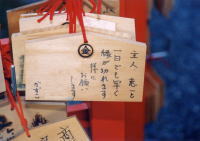 主人 と
一日でも早く
縁が切れます
様に
お願い
します
金